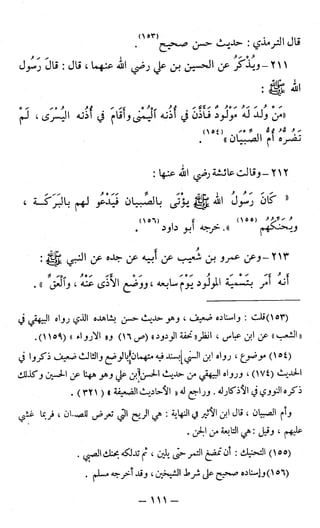 قال الترمذي : حديث حسن صحيح (١٥٣) .
٢١١ - ويُذكَرُ عن الحسين بن علي رضي الله عنهما ، قال : قالَ رَسُول
الله ﷺ :
« مَنْ وُلِدَ لَهُ مَوْلُودٌ فَأَذَّنَ في أُذنه اليُمْنى وأقَامَ في أُذنه اليُسْرى ، لَمْ
تَضُرَّهُ أُمُّ الصِّبْيان » (١٥٤) .
٢١٢ - وقالت عائشة رضي الله عنها :
« كَانَ رَسُولُ الله ﷺ يُؤتى بالصِّبيان فَيَدْعُو لهم بالبَرَكَـة ،
ويُحَنِّكُهُم (١٥٥) » . خرجه أبو داود (١٥٦) .
٢١٣ - وعن عمرو بن شُعيب عن أبيه عن جده عن النبي ﷺ :
أنَّهُ أمَر بتَسْمِيَة المَولُود يَوْمَ سَابعه ، ووَضْعِ الأذَى عَنْهُ ، والْعَقِّ » .
(١٥٣) قلت : واسناده ضعيف ، وهو حديث حسن بشاهده الذي رواه البيهقي في
« الشعب » عن ابن عباس ، انظر « تحفة الودود » (ص ١٦) و« الارواء » (١١٥٩) .
(١٥٤) موضوع ، رواه ابن السني بسند فيه متهمان بالوضع والثالث ضعيف ذكروا في
الحديث (١٧٤) ، ورواه البيهقي من حديث الحسن بن علي وهو هنا عن الحسين وكذلك
ذكره النووي في الأذكار له . وراجع له « الأحاديث الضعيفة » (٣٢١) .
وأم الصبيان ، قال ابن الأثير في النهاية : هي الريح التي تعرض للصبيان ، فربما غشي
عليهم ، وقيل : هي التابعة من الجن .
(١٥٥) التحنيك : أن تمضغ التمر حتى يلين ، ثم تدلكه بحنك الصبي .
(١٥٦) وإسناده صحيح على شرط الشيخين ، وقد أخرجه مسلم .
– ١١١ –